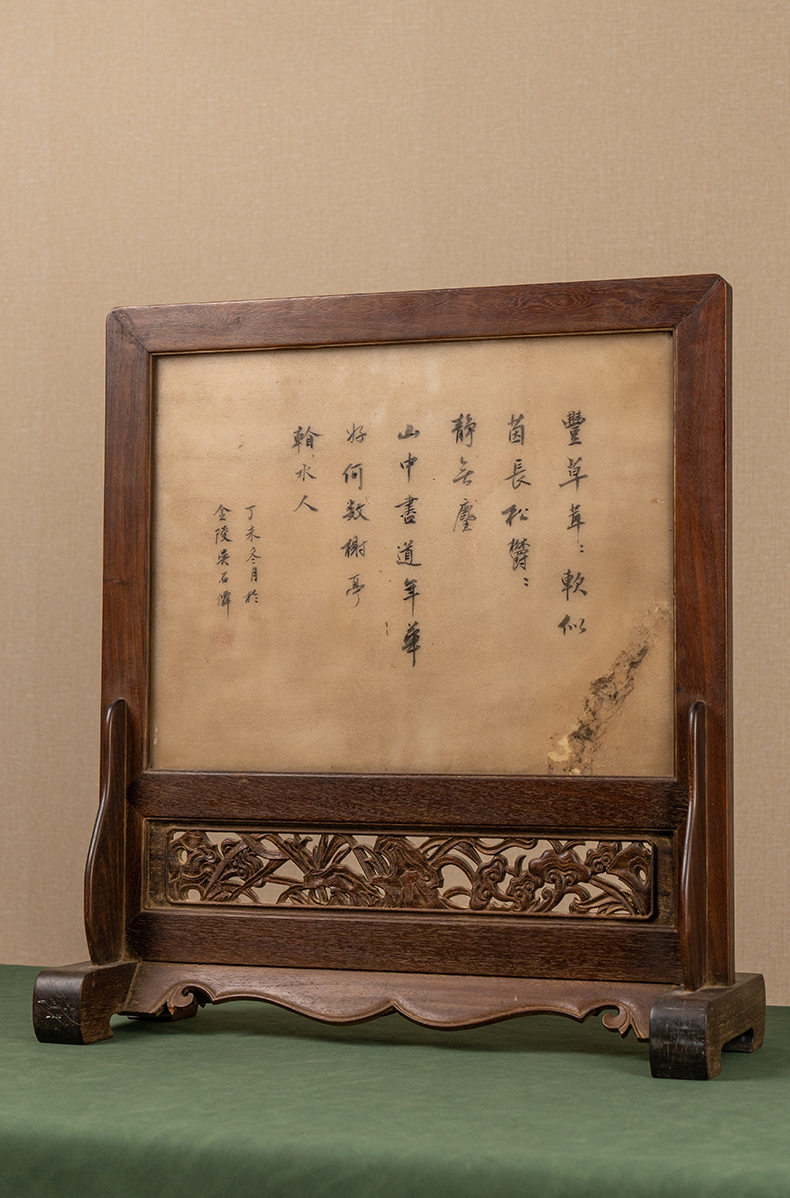 豐草茸：軟似
茵長松鬱：
靜無塵
山中書道年華
好何数榭亭
翰水人
丁未冬月於
金陵吳石僊